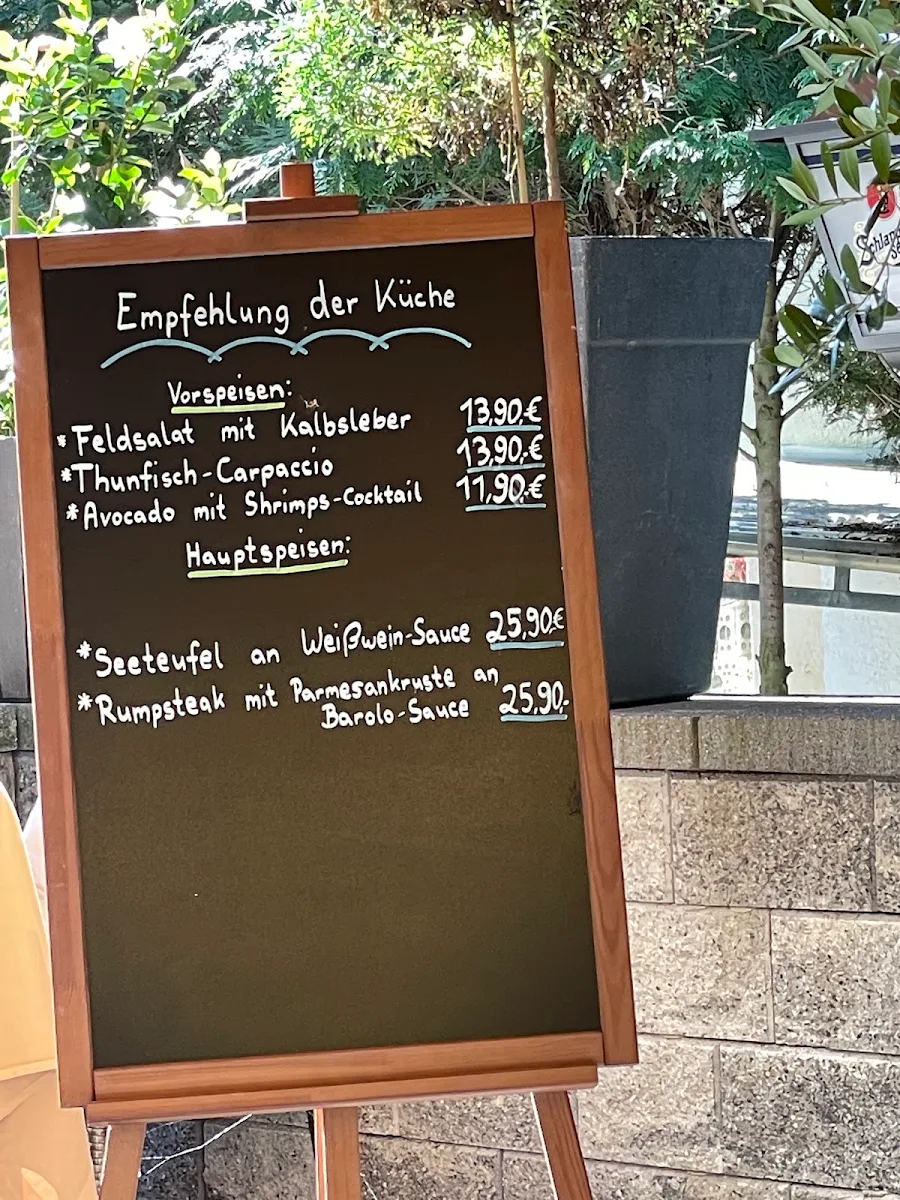 Empfehlung der Küche
Vorspeisen:
*Feldsalat mit Kalbsleber 13,90€
*Thunfisch-Carpaccio 13,90,-€
*Avocado mit Shrimps-Cocktail 11,90,-€
Hauptspeisen:
*Seeteufel an Weißwein-Sauce 25,90€
*Rumpsteak mit Parmesankruste an
Barolo-Sauce 25,90,-